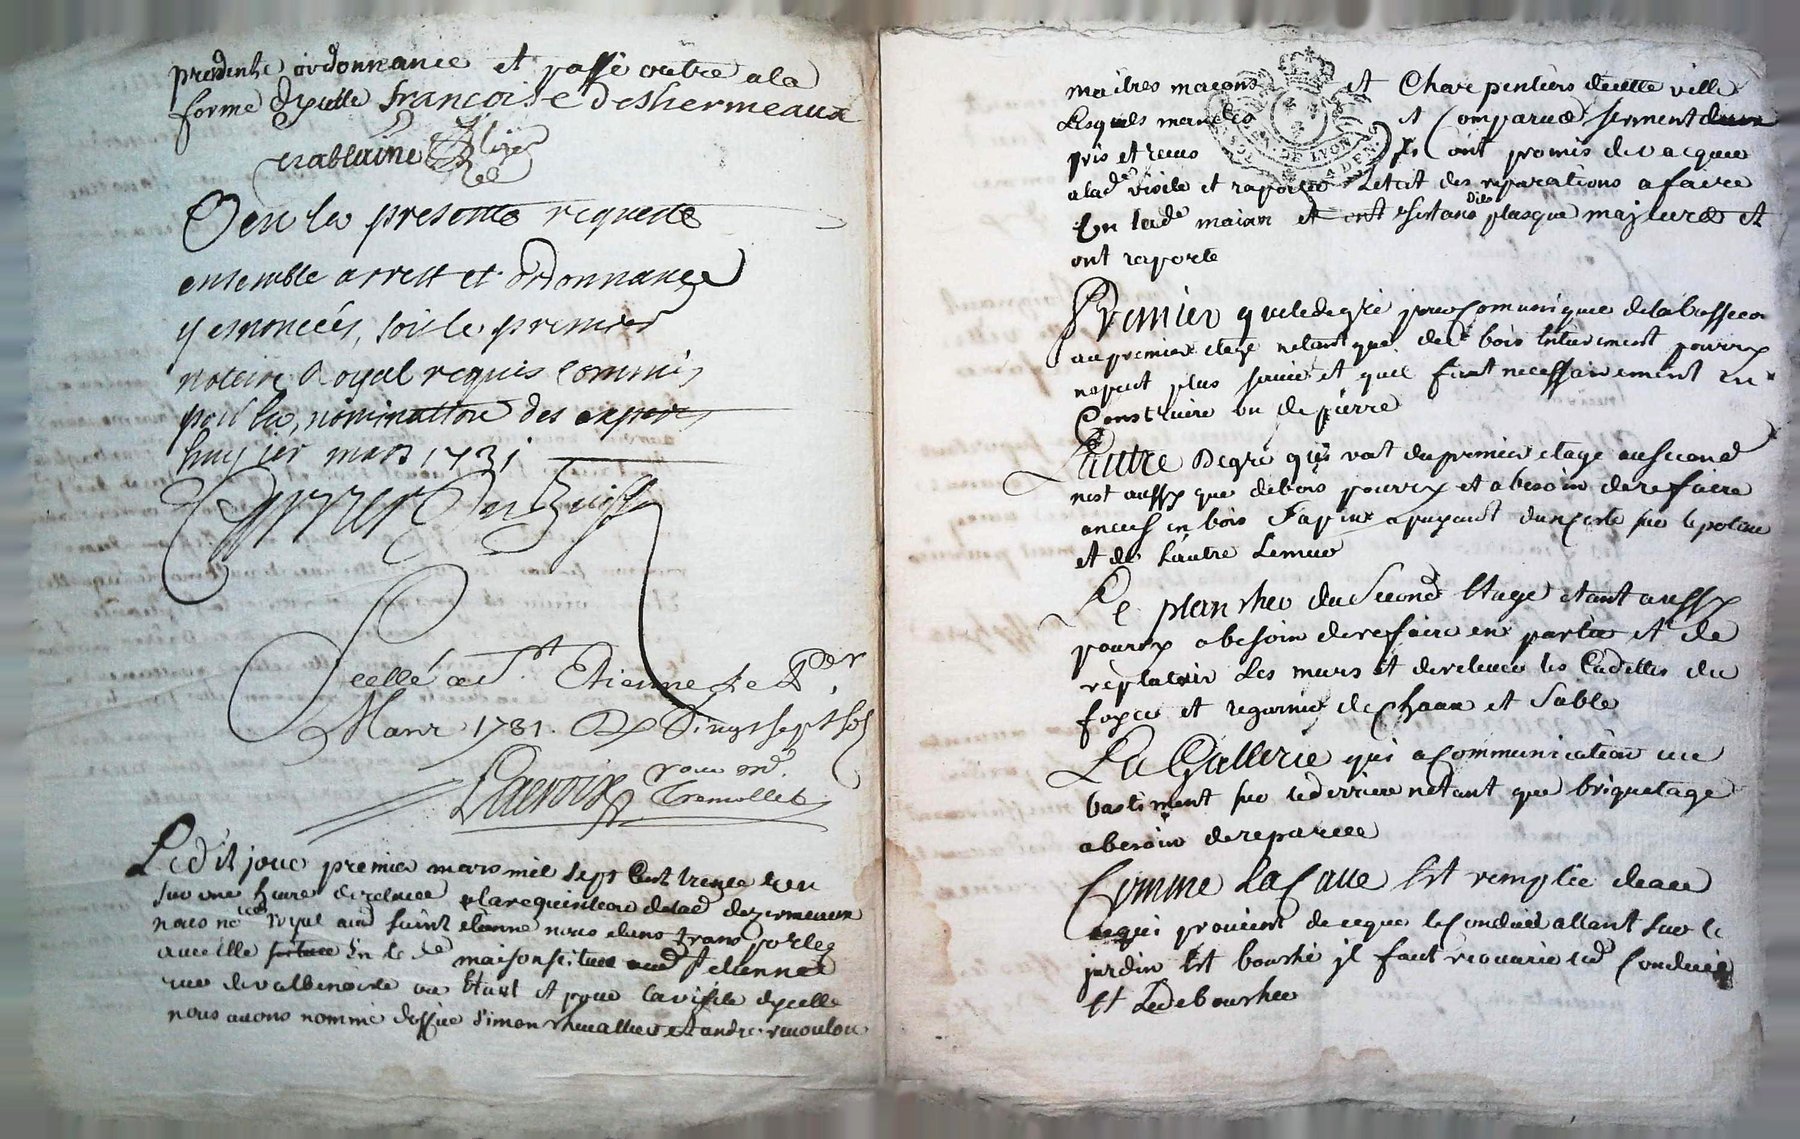 presente ordonnance et passé outre a la
forme dycelle francoise deshermeaux
crablaine
Veu la presente requeste
ensemble arrest et ordonnance
y enoncées, soit le premier
notaire Royal requis commis
pour la nomination des expers
huy ier mars 1731
Scellé a St. Etienne le Pder
Mars 1731. Vingt sept sols
Lacroix pour md.
Tremollet
Ledit jour premier mars mil sept Cent trente un
sur une heure de relevée a la requisition de lad dezermeaux
nous nore royal aud saint etienne nous etans transportes
avec elle en le de maison situee aud St etienne
rue de valbenoite ou etant et pour la visite dycelle
nous avons nommé d'office simon chevallier et andre
maitres maçons et Charpentiers de cette ville
Lesquels mandes et Comparus serment
pris et receu ils ont promis de vacquer
a lade visite et raporter Letat des reparations a faire
En lade maison et ont dies plasque majeures et
ont raporté
GEN. DE LYON
Premier que le degré pour Comunique de la basse cou
au premier etage netant que de bois entierement pourry
ne peut plus servir et quil faut necessairement en
Construire un de pierre
Lautre Degré qui vat du premier etage au second
nest aussy que de bois pourry et a besoin de refaire
a neuf en bois Sapin apuyant dun coste sur le poteau
et de Lautre Le mur
Le plancher du Second Etage etant aussy
pourry a besoin de refaire en partie et de
replatrir Les murs et de relever les Cadettes du
foyer et regarnir de Chaux et Sable
La Gallerie qui a Communication au
bastiment sur le derriere netant que briquetage
a besoin de reparer
Comme La Cave Est remplie deau
ce qui provient de ce que le Conduit allant sur le
jardin Est bouché jl faut rouvrir led Conduit
Et Le deboucher